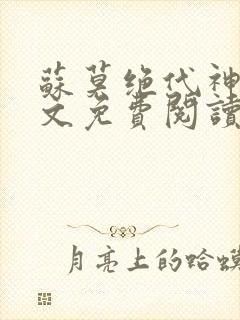 蘇莫绝代神
文免費閱讀
月亮上的蛤蟆